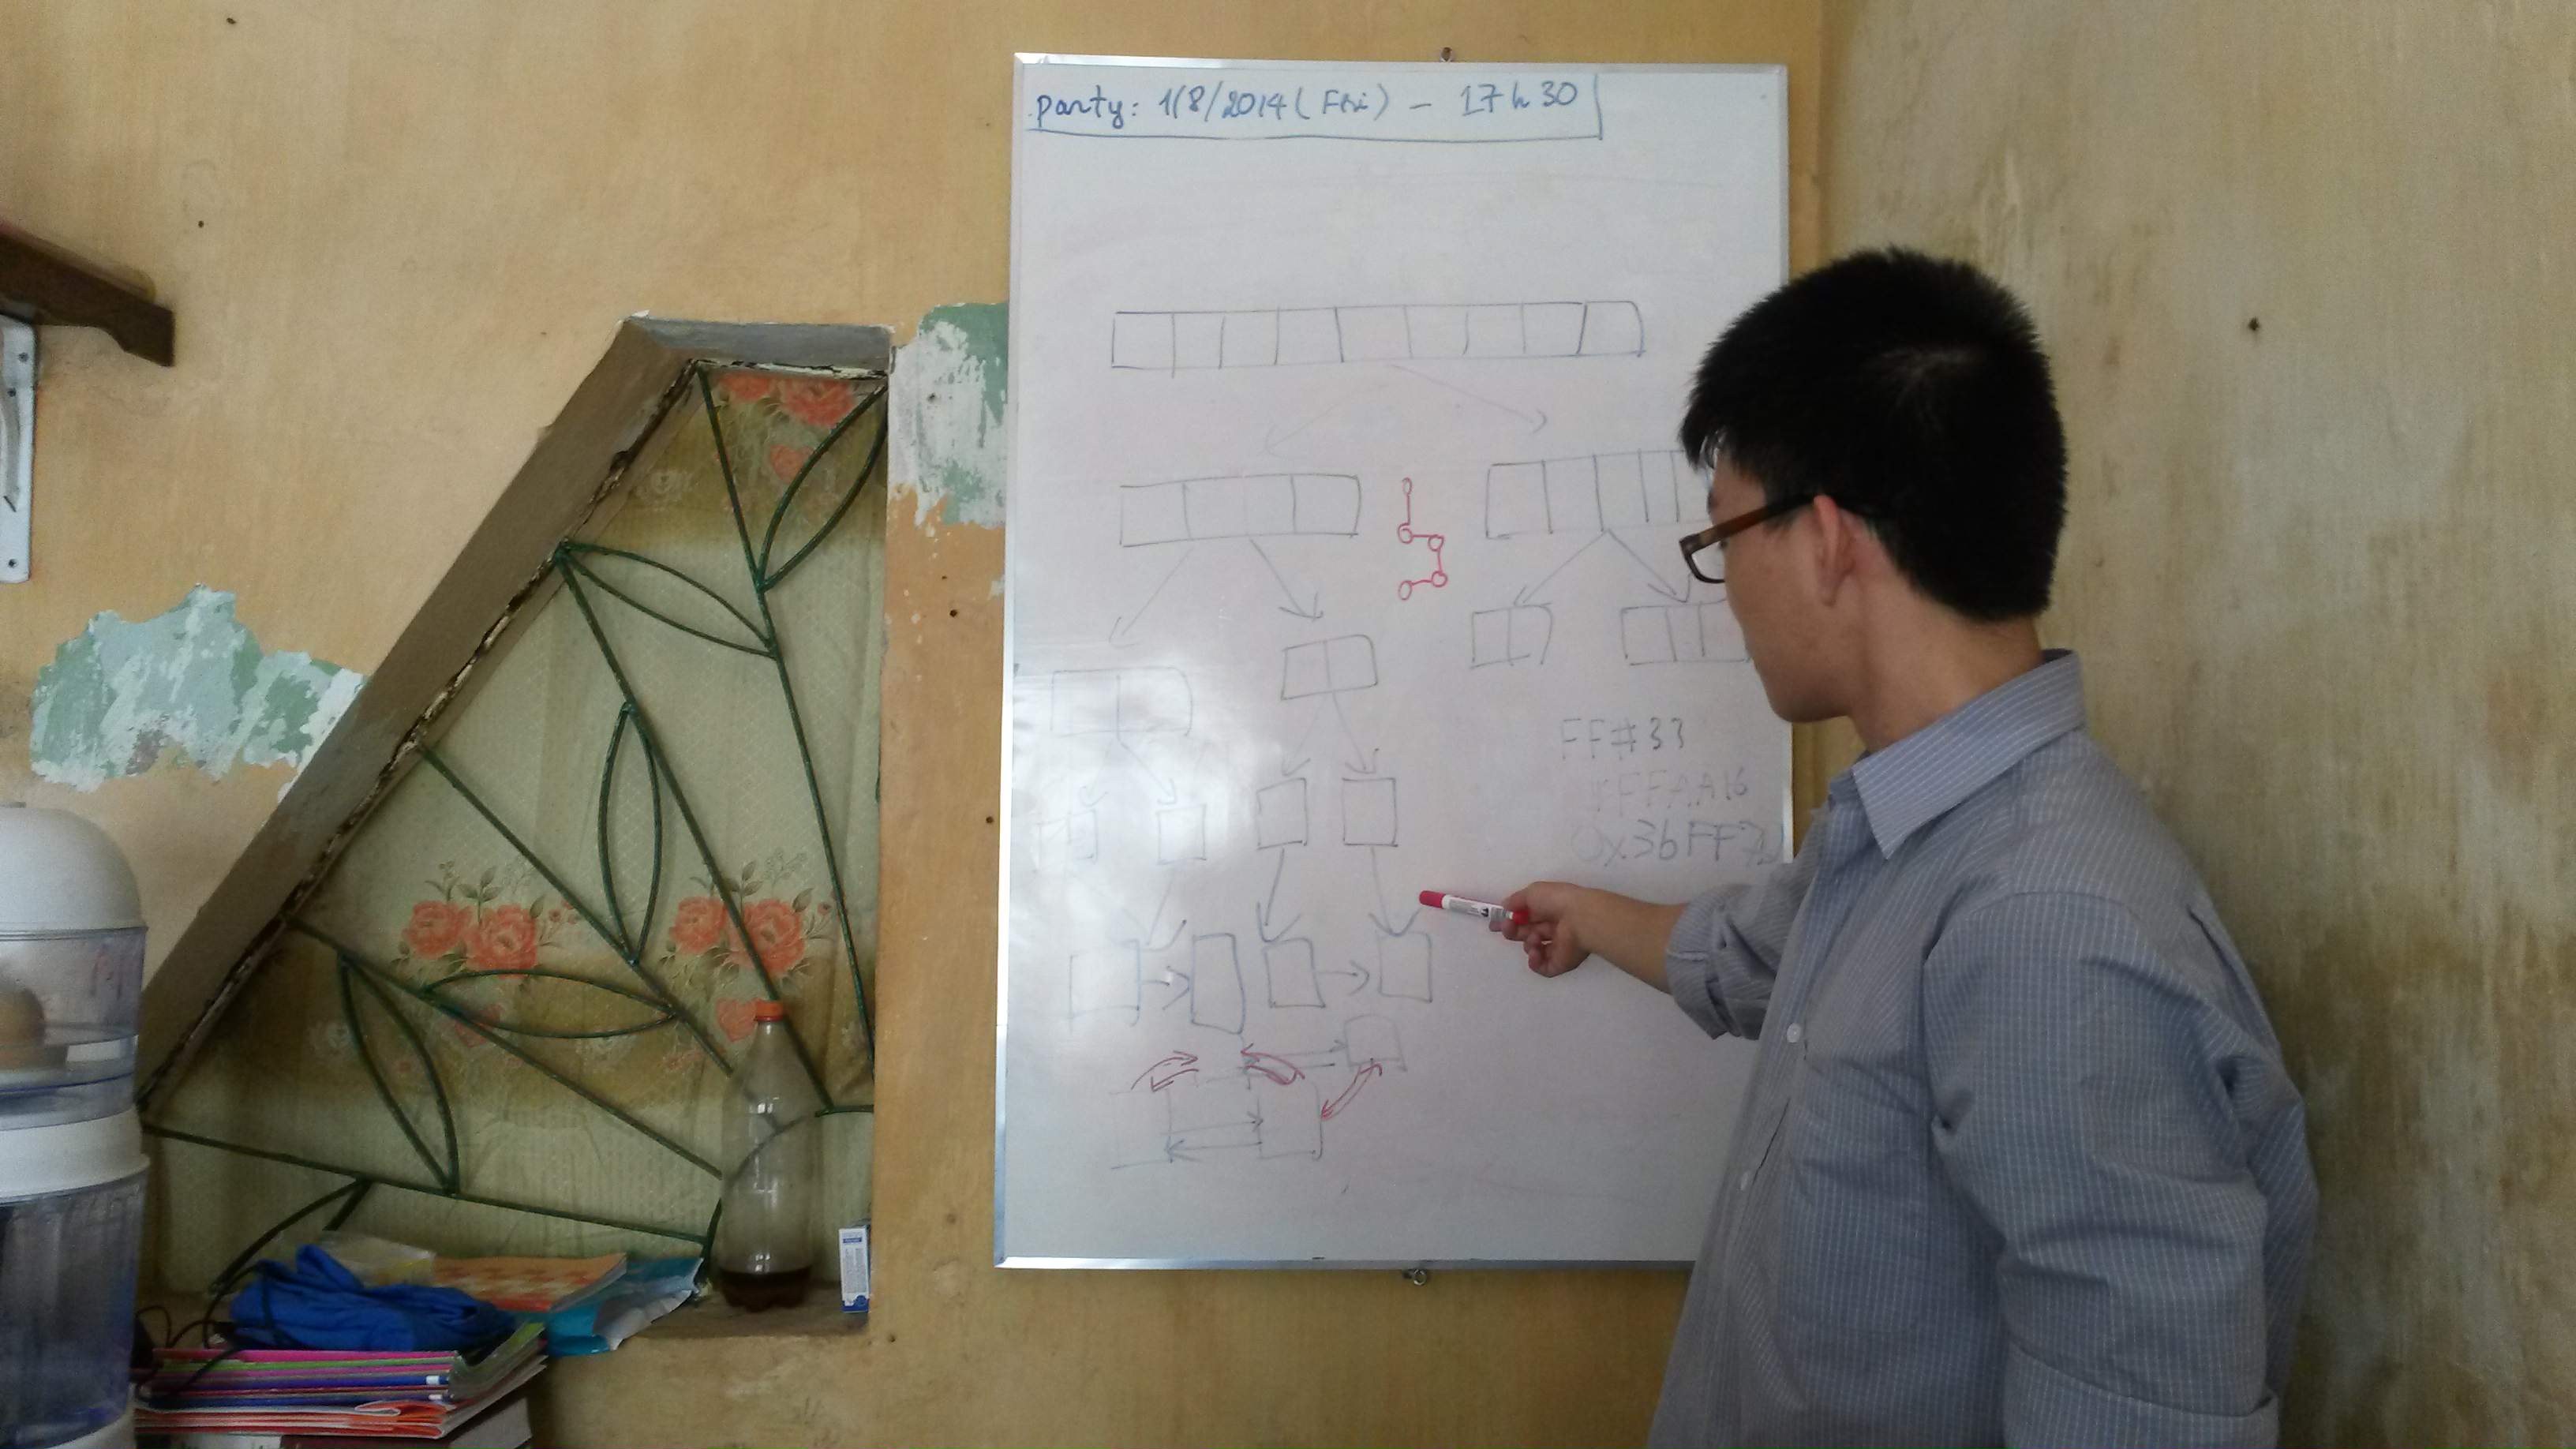 party: 1/8/2014 (Fri) - 17h30
FF#33
#FFAA16